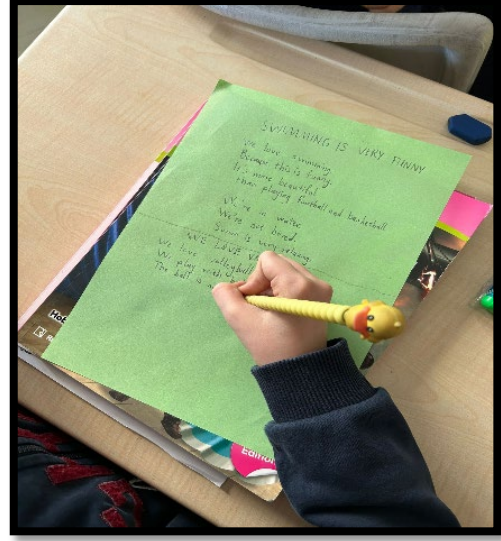 SWIMMING IS VERY FUNNY
We love swimming
Because this is funny.
It's more beautiful
than playing football and basketball
We're in water
We're not bored.
Swim is very relaxing.
WE LOVE V
We love volleyball
We play
The ball is
Edition